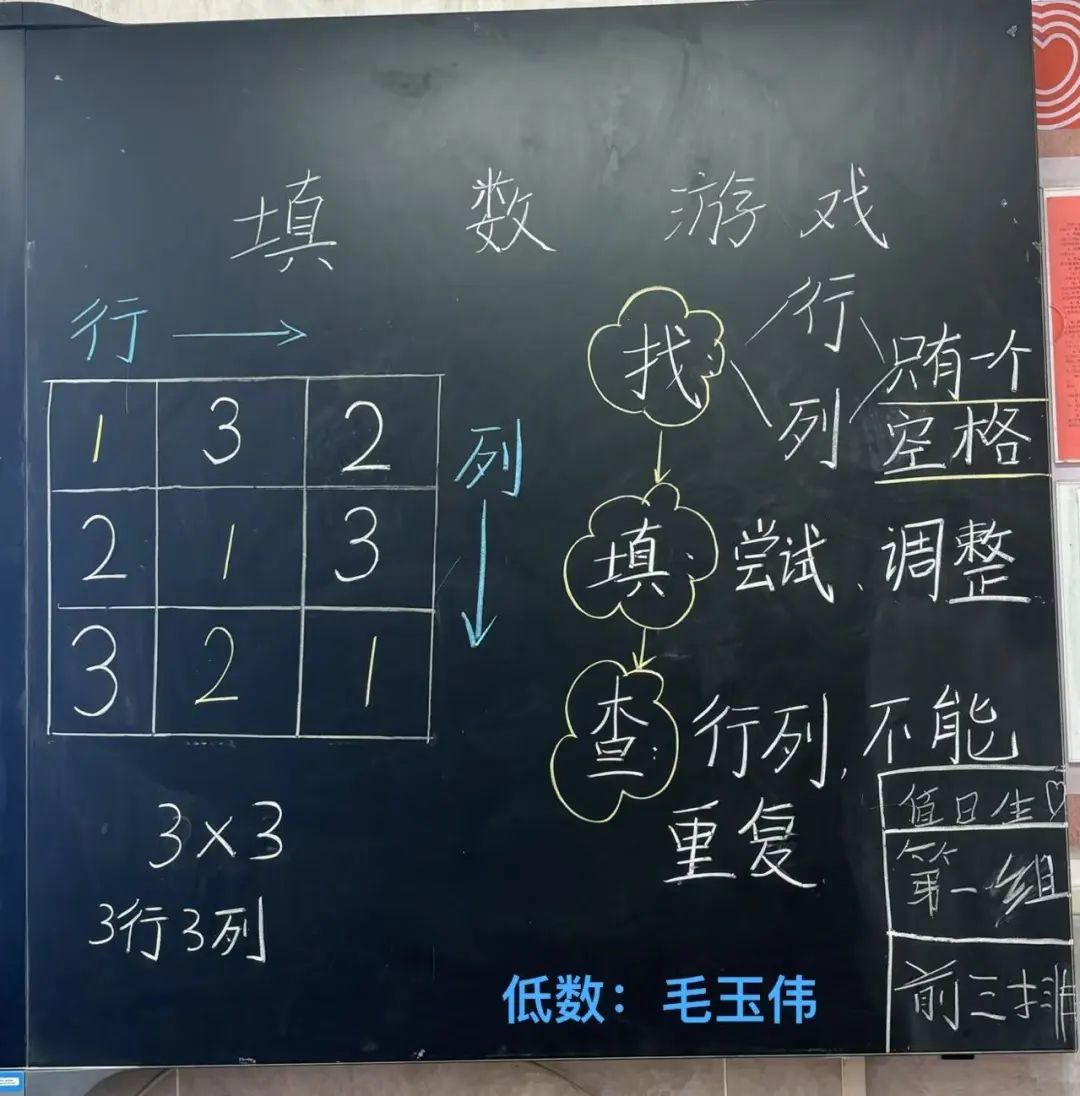 填 数 游戏
行 →
1 3 2
2 1 3
3 2 1
列
3×3
3行3列
找 行 列 只有一个
空格
填 尝试、调整
查 行列,不能
重复
值日生♡
第一组
前三排
低数：毛玉伟